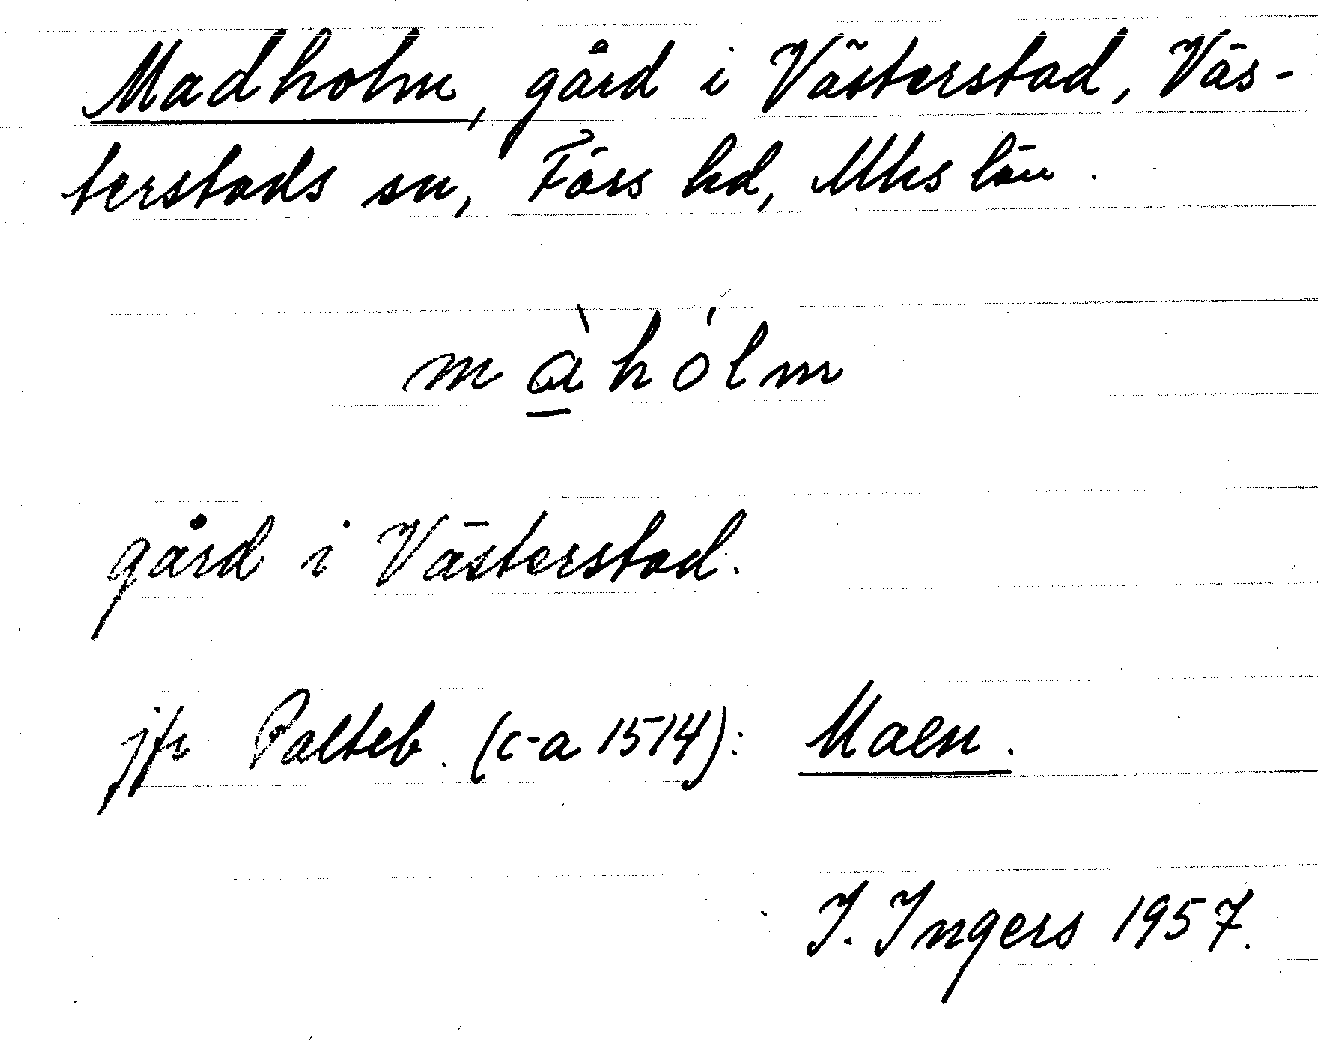 Madholm, gård i Västerstad, Väs-
terstads sn, Färs hd, Mhs län.
màhólm
gård i Västerstad.
jfr Palteb. (c-a 1514): Maen.
I. Ingers 1957.